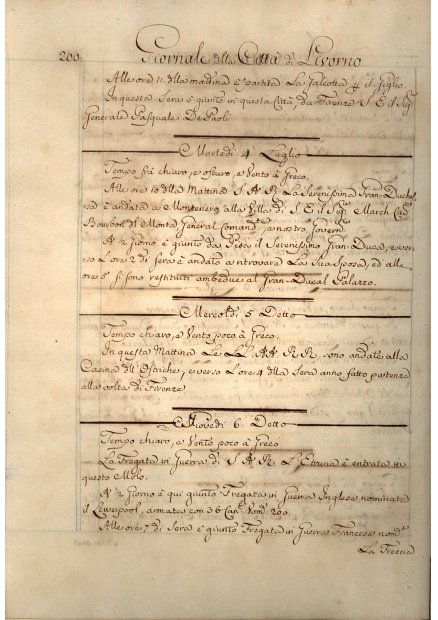 200 Giornale della Città di Livorno
Alle ore 11. della mattina è partita La Galeotta p il Giglio
In questa Sera è giunto in questa Città da Firenze S. E. il Sigr
Generale Pasquale De Paoli
Martedì 4 Luglio
Tempo frà chiaro, e oscuro, e Vento à Greco.
Alle ore 10 della Mattina S. A. R. La Serenissima Gran-Duch
sa è andata a Montenero alla Villa di S. E. il Sigr March
Bourbon del Monte General Comand e nostro Govern
A ½ Giorno è giunto da Pisa il Serenissimo Gran-Duca, e ver
so L'ore 2 di sera è andato a ritrovare La Sua Sposa, ed alle
ore si sono restituiti ambedue al Gran-Ducal Palazzo.
Mercoldì 5 Detto
Tempo chiaro, e Vento poco à Greco.
In questa Mattina Le LL. AA. RR. sono andate alla
Casina dell'Ostriche, e verso L'ore 4 della Sera anno fatto partenza
alla volta di Firenze
Giovedì 6. Detto
Tempo chiaro, e Vento poco à Greco.
La Fregata in Guerra di S. A. R. L'Etruria è entrata in
questo Molo.
A ½ Giorno è qui giunto Fregata in Guerra Inglese nominata
Lewerpool, armata con 36 Can Uom: 200.
Alle ore 7 di Sera è giunto Fregata in Guerra Francese nom
La Treccia